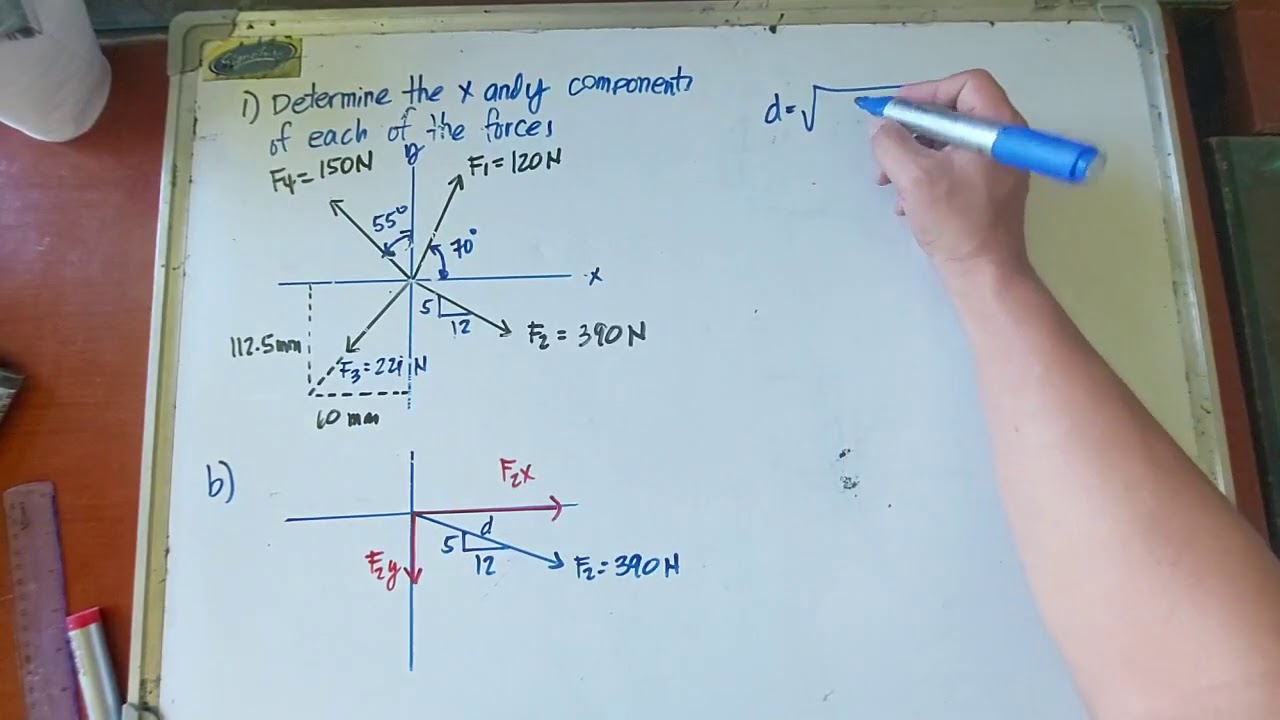 1) Determine the x and y components
of each of the forces
y
F4=150N
F1=120N
55°
70°
x
5
12
F2 = 390N
112.5mm
60 mm
b)
F2x
d
5
12
F2y
F2=390N
d=√